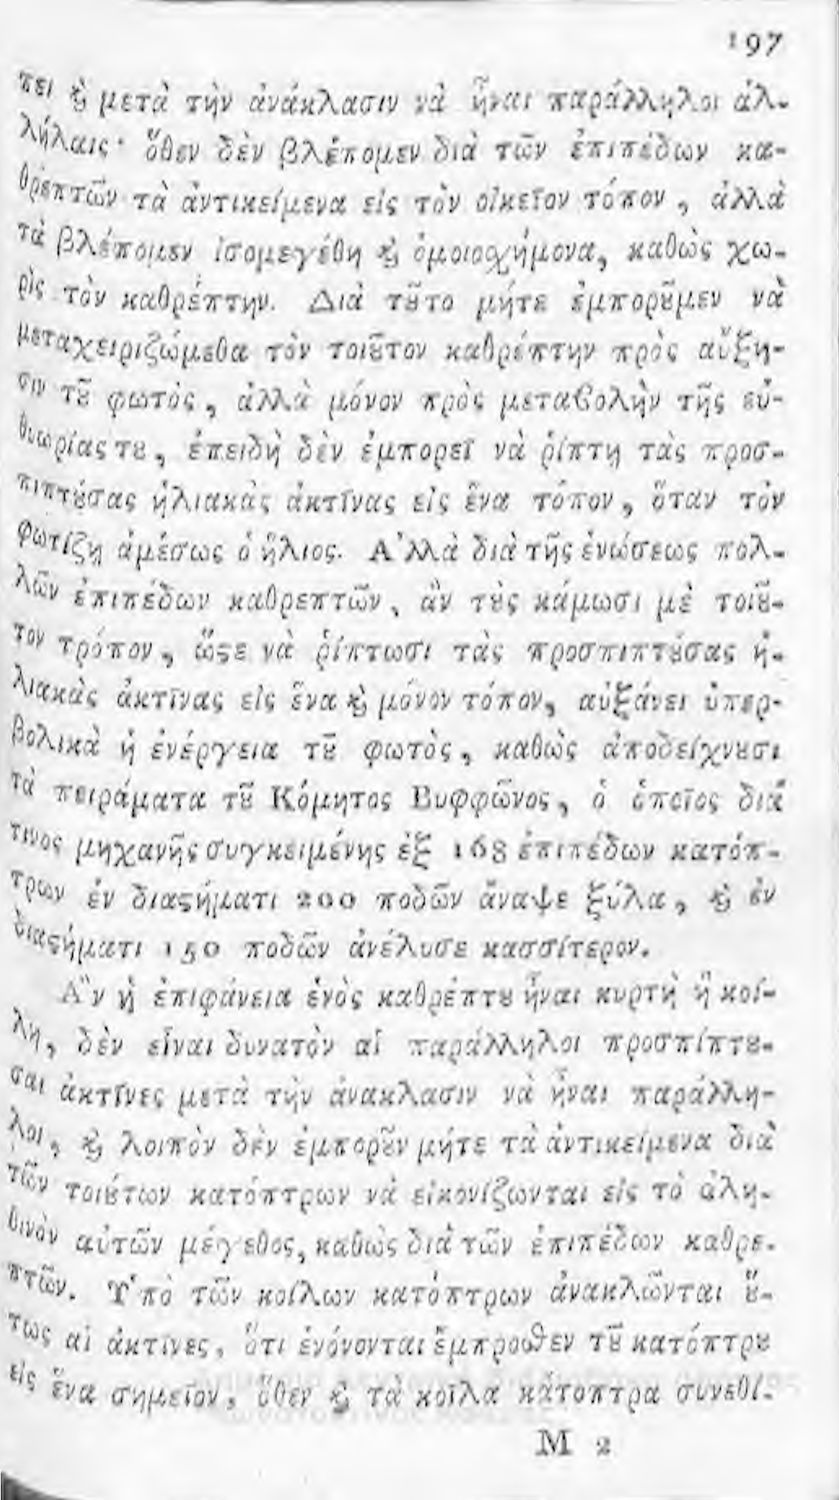 197
πει ϗ μετὰ τὴν ἀνάκλασιν νὰ ἦναι παράλληλοι ἀλ-
λήλαις· ὅθεν δὲν βλέπομεν διὰ τῶν ἐπιπέδων κα-
θρεπτῶν τὰ ἀντικείμενα εἰς τὸν οἰκεῖον τόπον, ἀλλὰ
τὰ βλέπομεν ἰσομεγέθη ϗ ὁμοιοσχήμονα, καθὼς χω-
ρὶς τὸν καθρέπτην. Διὰ τȣ͂το μήτε ἐμπορȣ͂μεν νὰ
μεταχειριζώμεθα τὸν τοιȣ͂τον καθρέπτην πρὸς αὔξη-
σιν τȣ͂ φωτὸς, ἀλλὰ μόνον πρὸς μεταβολὴν τῆς εὐ-
θυωρίας τȣ, ἐπειδὴ δὲν ἐμπορεῖ νὰ ῥίπτῃ τὰς προσ-
πιπτȣ́σας ἡλιακὰς ἀκτῖνας εἰς ἕνα τόπον, ὅταν τὸν
φωτίζῃ ἀμέσως ὁ ἥλιος. Ἀλλὰ διὰ τῆς ἑνώσεως πολ-
λῶν ἐπιπέδων καθρεπτῶν, ἂν τȣ̀ς κάμωσι μὲ τοιȣ͂-
τον τρόπον, ὥϛε νὰ ῥίπτωσι τὰς προσπιπτȣ́σας ἡ-
λιακὰς ἀκτῖνας εἰς ἕνα ϗ μόνον τόπον, αὐξάνει ὑπερ-
βολικὰ ἡ ἐνέργεια τȣ͂ φωτὸς, καθὼς ἀποδείχνȣσι
τὰ πειράματα τȣ͂ Κόμητος Βυφφῶνος, ὁ ὁποῖος διά
τινος μηχανῆς συγκειμένης ἐξ 168 ἐπιπέδων κατόπ-
τρων ἐν διαϛήματι 200 ποδῶν ἄναψε ξύλα, ϗ ἐν
διαϛήματι 150 ποδῶν ἀνέλυσε κασσίτερον.
Ἂν ἡ ἐπιφάνεια ἑνὸς καθρέπτȣ ἦναι κυρτὴ ἢ κοί-
λη, δὲν εἶναι δυνατὸν αἱ παράλληλοι προσπίπτȣ-
σαι ἀκτῖνες μετὰ τὴν ἀνακλασιν νὰ ἦναι παράλλη-
λοι, ϗ λοιπὸν δὲν ἐμπορȣ͂ν μήτε τὰ ἀντικείμενα διὰ
τῶν τοιȣ́των κατόπτρων νὰ εἰκονίζωνται εἰς τὸ ἀλη-
θινὸν αὐτῶν μέγεθος, καθὼς διὰ τῶν ἐπιπέδων καθρε-
πτῶν. Ὑπὸ τῶν κοίλων κατόπτρων ἀνακλῶνται ȣ̔́-
τως αἱ ἀκτῖνες, ὅτι ἑνόνονται ἔμπροσθεν τȣ͂ κατόπτρȣ
εἰς ἕνα σημεῖον, ὅθεν ϗ τὰ κοῖλα κάτοπτρα συνεθί-
M 2